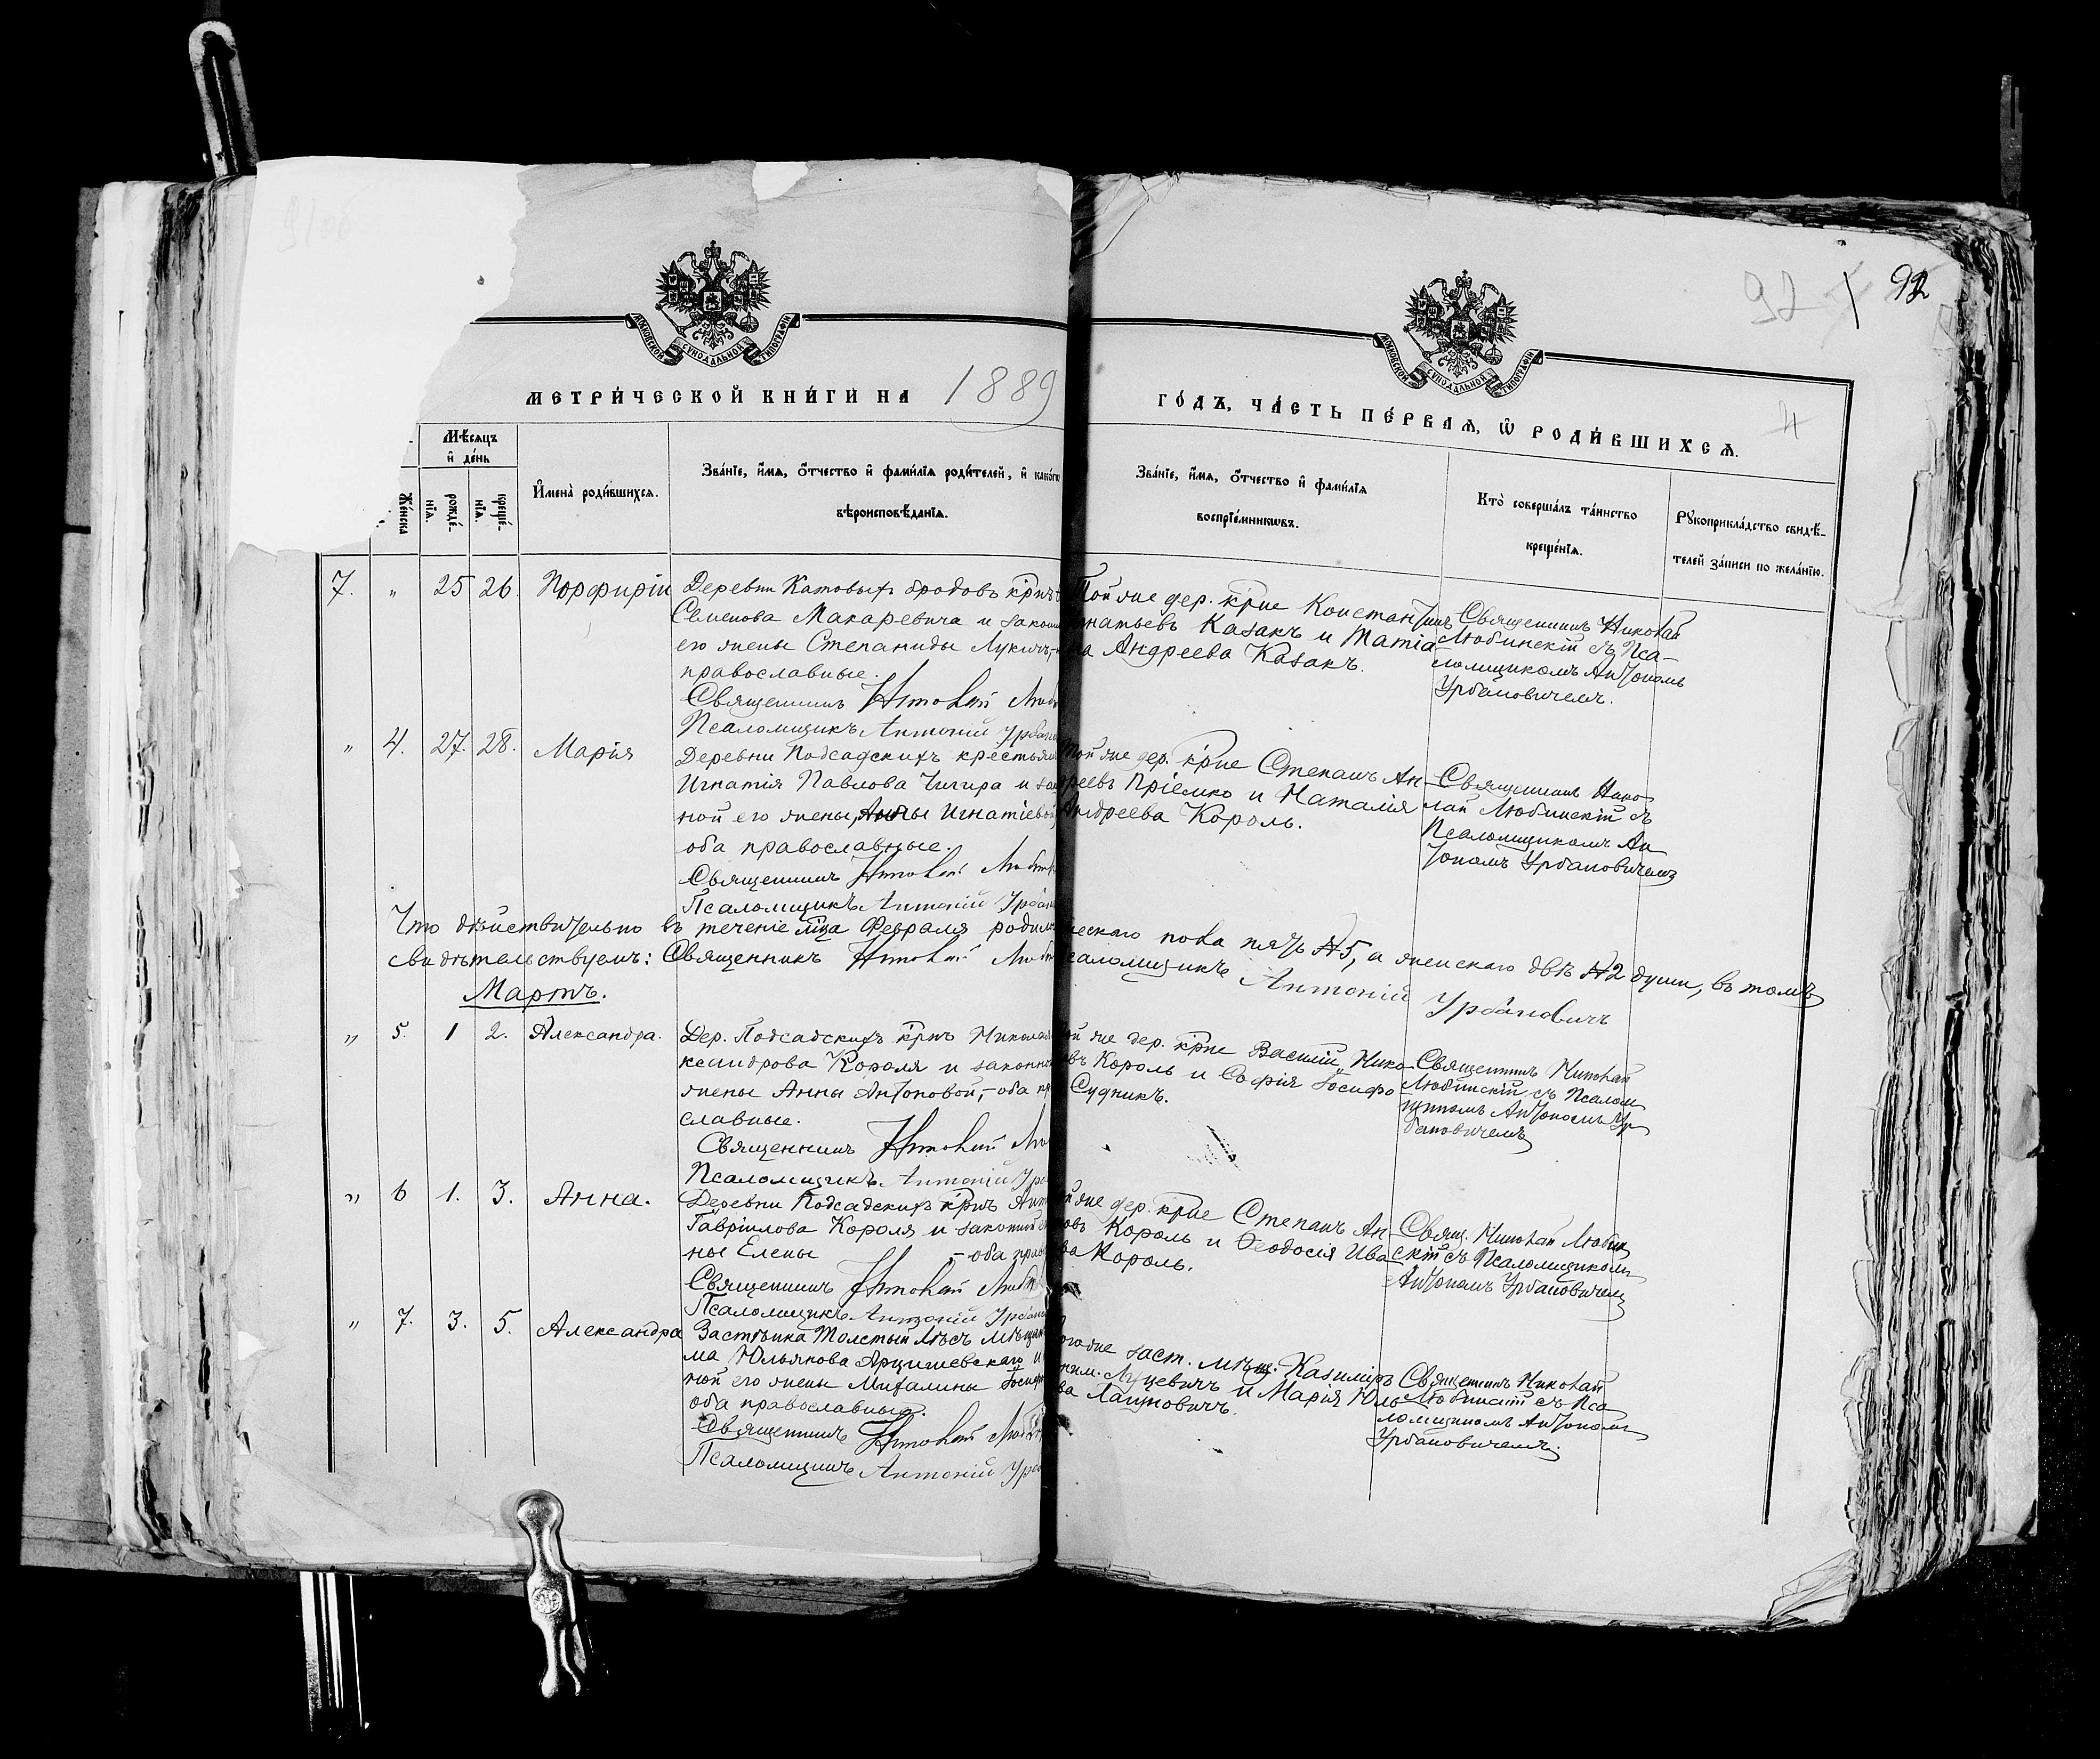 92 92
МОСКОВСКОЙ СУНОДАЛЬНОЙ ТИПОГРАФІИ
МОСКОВСКОЙ СУНОДАЛЬНОЙ ТИПОГРАФІИ
МЕТРИ́ЧЕСКОЙ КНИ́ГИ НА 1889
ГО́ДЪ, ЧА́СТЬ ПЕ́РВАѦ, Ѿ РОДИ́ВШИХСѦ. 4
Мѣсяцъ и де́нь
Же́нска
рожде́-нїѧ.
креще́-нїѧ.
Имена̀ роди́вшихсѧ.
Зва́нїе, и́мѧ, ѻ́тчество и фами́лїѧ роди́телей, и како́гѡ
вѣроисповѣданїѧ.
Зва́нїе, и́мѧ, ѻ́тчество и фами́лїѧ
воспрїе́мникѡвъ.
Кто̀ соверша́лъ та́инство
креще́нїѧ.
Рꙋкоприкла́дство свидѣ-
телей за́писи по жела́нїю.
7. " 25 26. Порфирій
Деревни Катовыхъ бродовъ крнъ
Семенова Макаревича и закон
его жены Степаниды Лукич,-
православные.
Священникъ Николай Люби
Псаломщикъ Антоній Урбан
Той же дер. крне Константинъ
Игнатьевъ Казакъ и Матіа-
на Андреева Казакъ.
Священникъ Николай
Любинскій съ Пса-
ломщикомъ Антономъ
Урбановичемъ.
" 4. 27. 28. Марія
Деревни Подсадскихъ крестьян
Игнатія Павлова Чигира и за
ной его жены, Анны Игнатіевой
оба православные.
Священникъ Николай Любин
Псаломщикъ Антоній Урбан
Той же дер. крне Степанъ Ан-
дреевъ Пріемко и Наталія
Андреева Король.
Священникъ Нико
лай Любинскій съ
Псаломщикомъ Ан
тономъ Урбановичемъ
Что дѣйствительно въ теченіе мца Февраля родилось ческаго пола пять №5, а женскаго двѣ №2 души, въ томъ
свидѣтельствуемъ: Священникъ Николай Люби саломщикъ Антоній Урбановичъ
Мартъ.
" 5. 1 2. Александра.
Дер. Подсадскихъ крнъ Николая
ксандрова Короля и законно
жены Анны Антоновой,- оба пр
славные.
Священникъ Николай Лю
Псаломщикъ Антоній Урб
ой же дер. крне Василій Нико-
въ Король и Софія Іосифо
Судникъ.
Священникъ Николай
Любинскій съ Псалом
щикомъ Антономъ Ур
бановичемъ
" 6 1. 3. Анна.
Деревни Подсадскихъ крнъ Ант
Гавріилова Короля и законной
ны Елены - оба прав
Священникъ Николай Люб
Псаломщикъ Антоній Урбан
й же дер. крне Степанъ Ан-
овъ Король и Ѳеодосія Ива
ва Король.
Свящ. Николай Любин
скій съ Псаломщикомъ
Антономъ Урбановичемъ
" 7. 3. 5. Александра
Застѣнка Толстый Лѣсъ мѣщан
ма Юльянова Арцишевскаго и
ной его жены Михалины Іосиф
оба православные.
Священникъ Николай Люби
Псаломщикъ Антоній Урб
ого же заст. мѣщ. Казиміръ
ким. Луцевичъ и Марія Юль
ва Лапновичъ.
Священникъ Николай
Любинскій съ Пса
ломщикомъ Антономъ
Урбановичемъ.